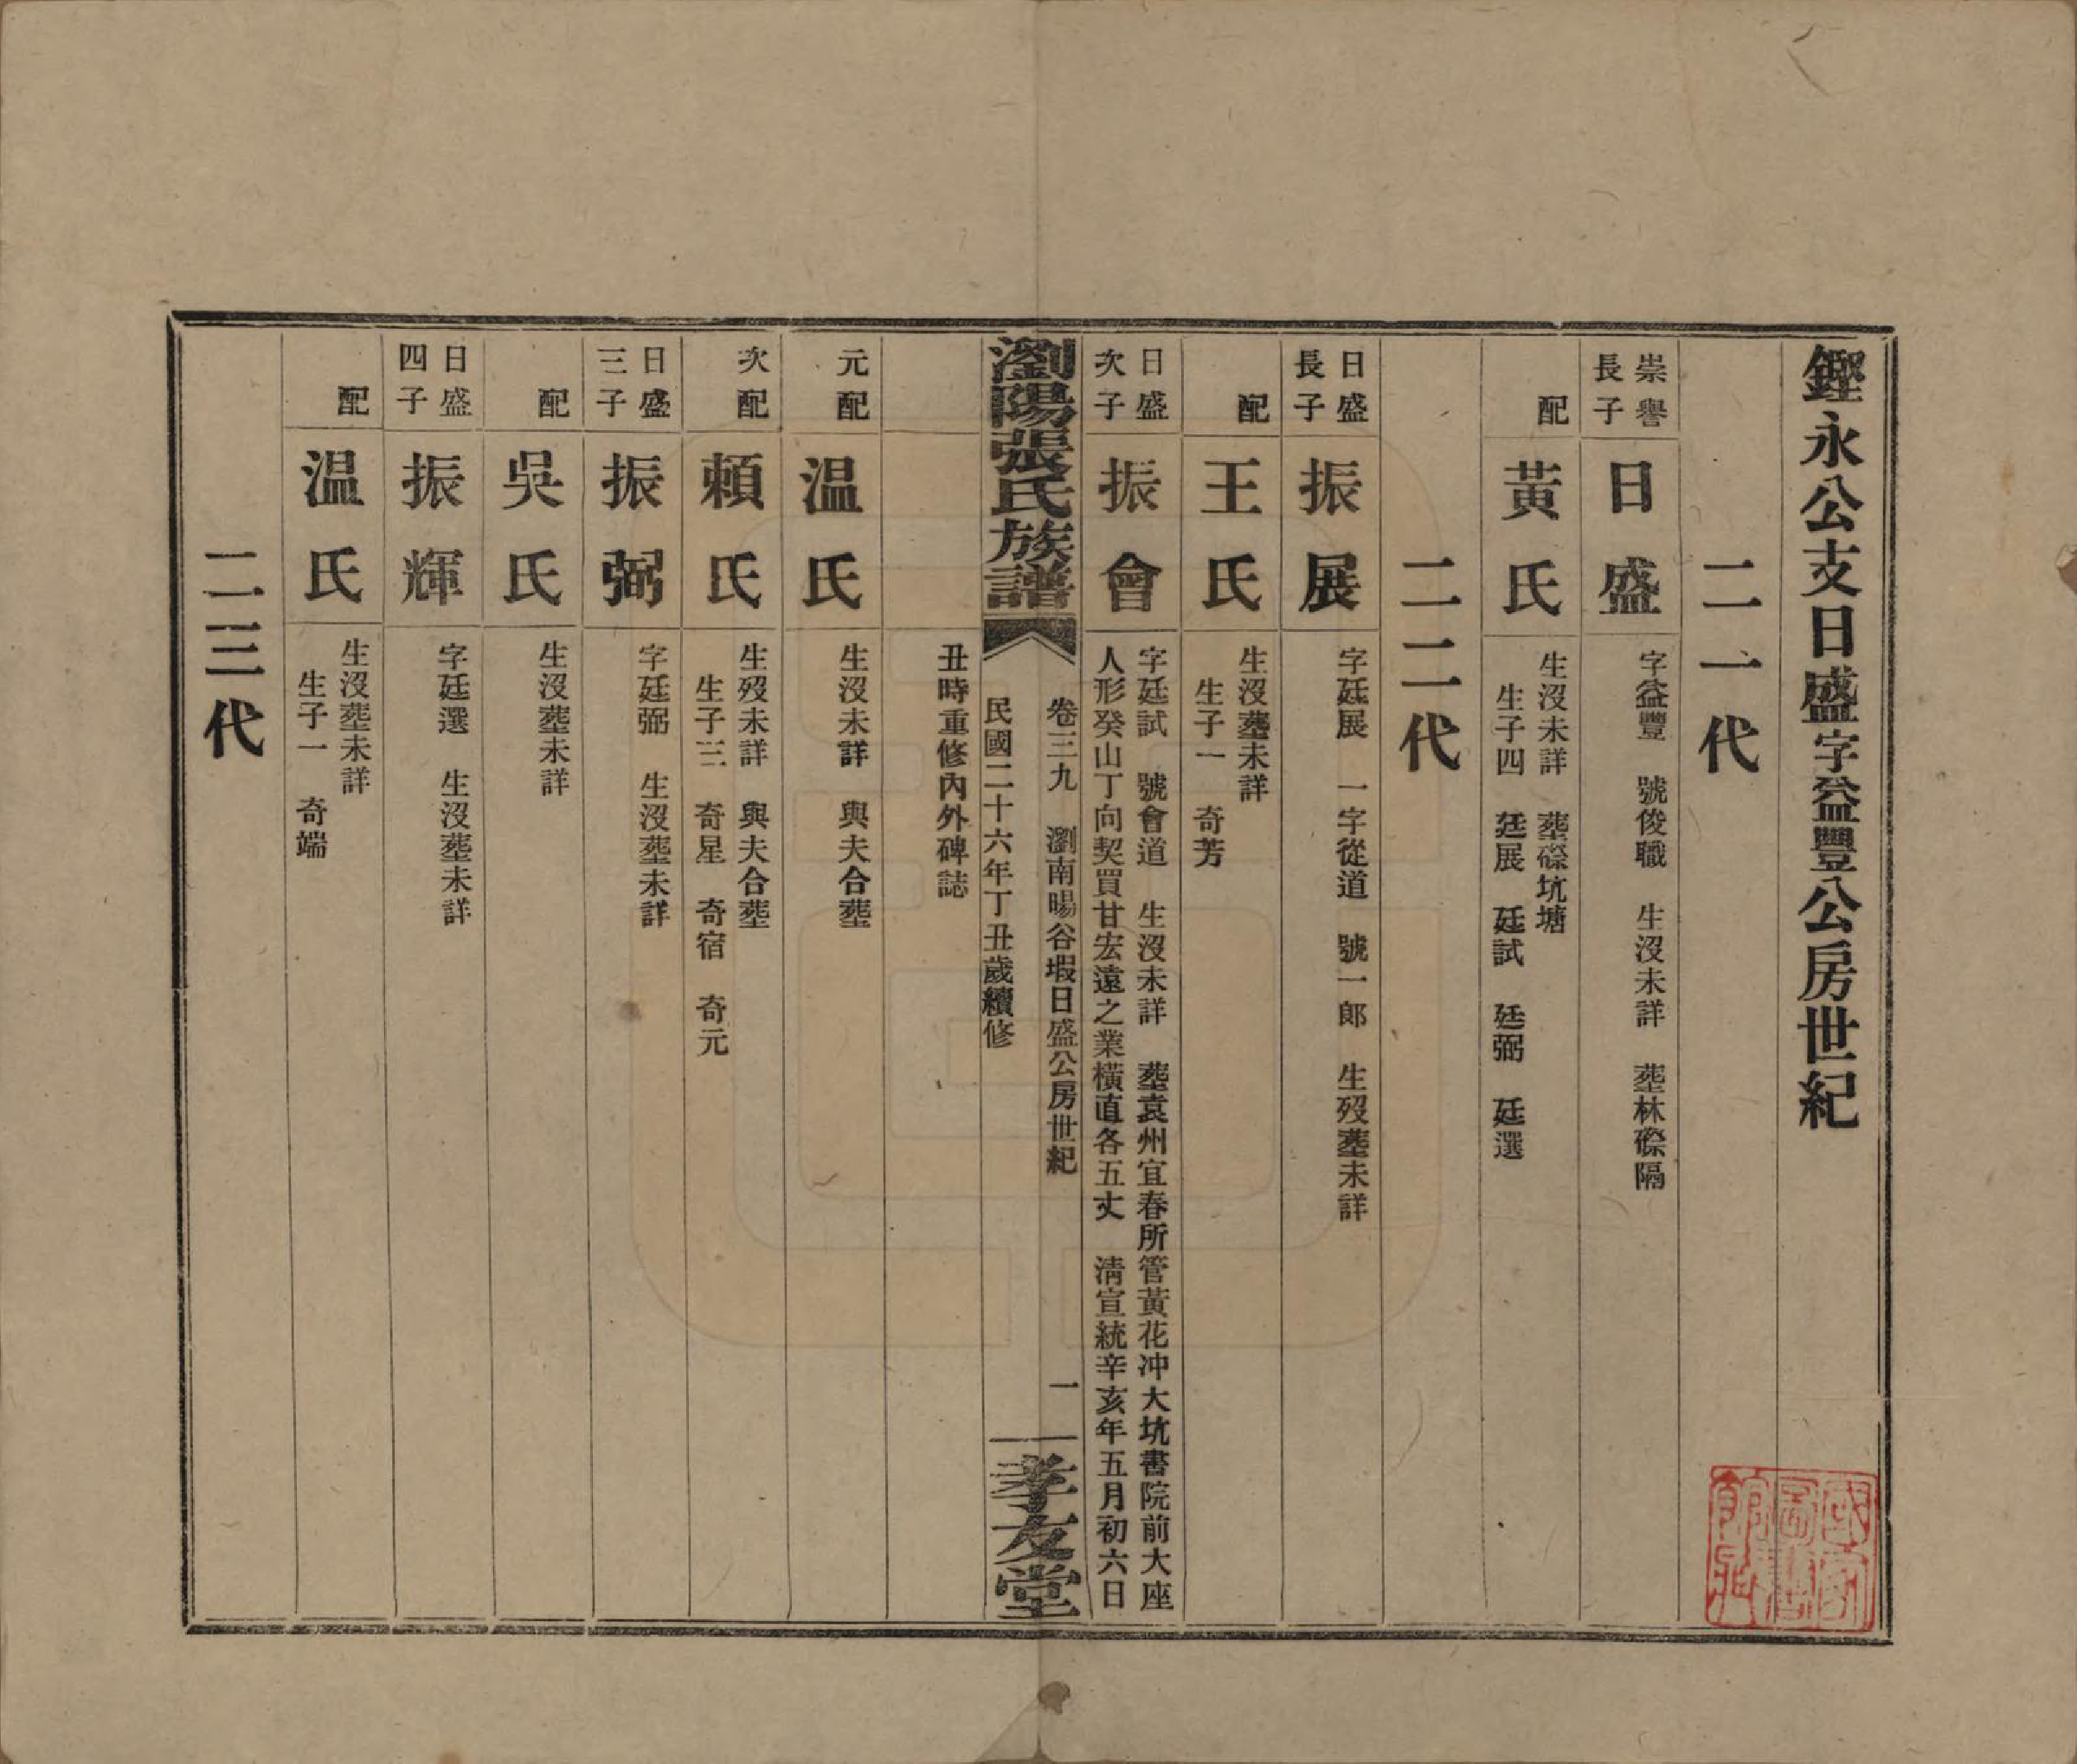 鏗永公支日盛字益豐公房世紀
二一代
崇譽長子
日盛
字益豐 號俊職 生沒未詳 塟林磜隔
配
黃氏
生沒未詳 塟磜坑塘
生子四 廷展 廷試 廷弼 廷選
二二代
日盛長子
振展
字廷展 一字從道 號一郎 生歿塟未詳
配
王氏
生沒塟未詳
生子一 奇芳
日盛次子
振會
字廷試 號會道 生沒未詳 塟袁州宜春所管黃花冲大坑書院前大座
人形癸山丁向契買甘宏遠之業橫直各五丈 淸宣統辛亥年五月初六日
瀏陽張氏族譜
卷三九 瀏南暘谷塅日盛公房世紀
一
民國二十六年丁丑歲續修
孝友堂
丑時重修內外碑誌
元配
温氏
生沒未詳 與夫合塟
次配
賴氏
生歿未詳 與夫合塟
生子三 奇星 奇宿 奇元
日盛三子
振弼
字廷弼 生沒塟未詳
配
吳氏
生沒塟未詳
日盛四子
振輝
字廷選 生沒塟未詳
配
温氏
生沒塟未詳
生子一 奇端
二三代